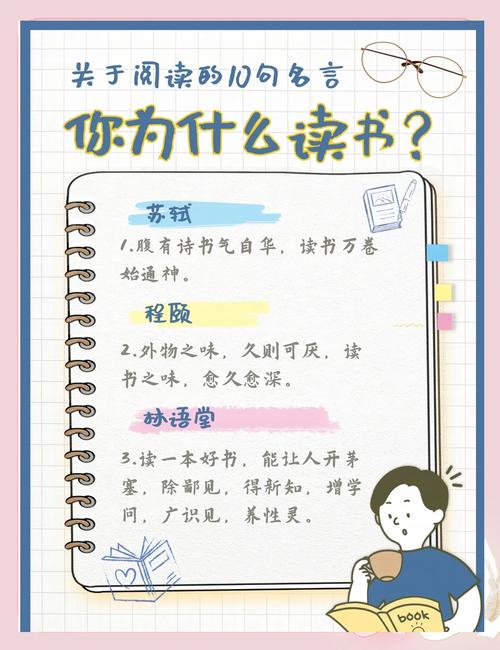 关于阅读的10句名言
你为什么读书？
苏轼
1.腹有诗书气自华，读书万卷
始通神。
程颐
2.外物之味，久则可厌，读
书之味，愈久愈深。
林语堂
3.读一本好书，能让人开茅
塞，除鄙见，得新知，增学
问，广识见，养性灵。
book